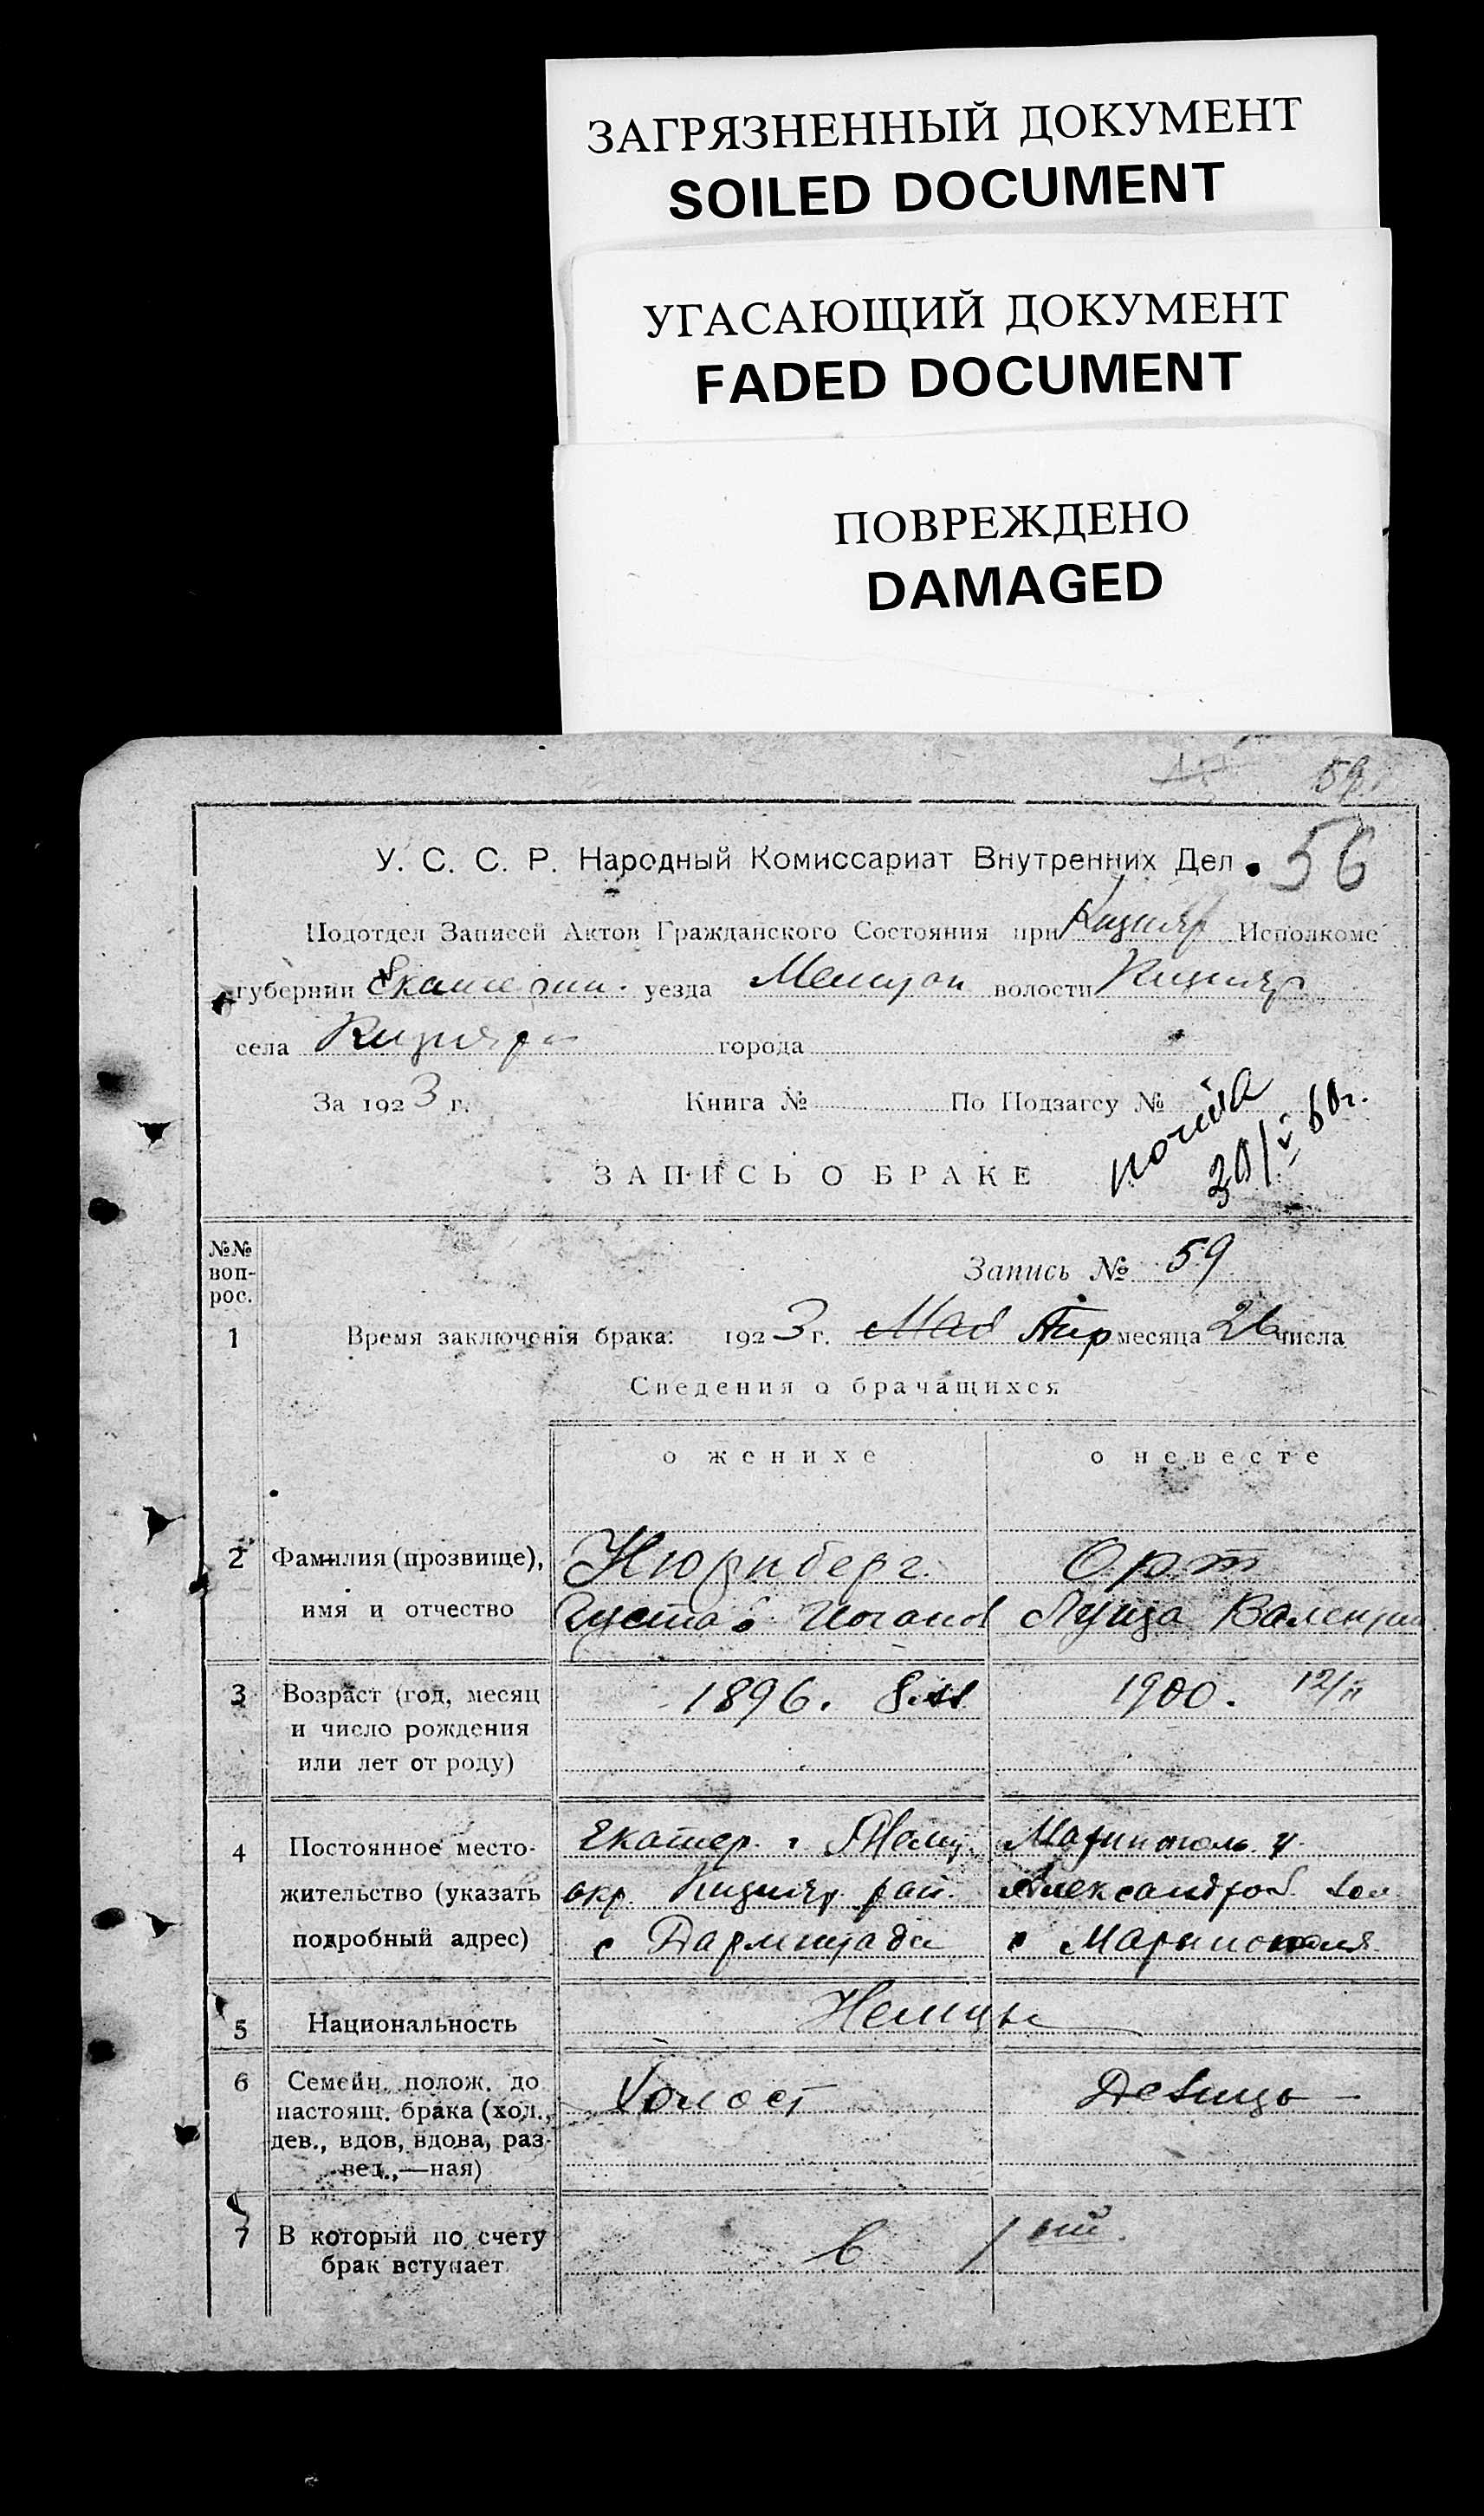 ЗАГРЯЗНЕННЫЙ ДОКУМЕНТ
SOILED DOCUMENT
УГАСАЮЩИЙ ДОКУМЕНТ
FADED DOCUMENT
ПОВРЕЖДЕНО
DAMAGED
59
56
У. С. С. Р. Народный Комиссариат Внутренних Дел
Подотдел Записей Актов Гражданского Состояния при Кизияр Исполкоме
губернии Екатерин. уезда Мелитоп волости Кизияр
села Кизияра города
За 1923 г. Книга № По Подзагсу №
30/V 60г.
ЗАПИСЬ О БРАКЕ
№№ воп-рос.
Запись № 59
1 Время заключенія брака: 1923 г. Май Апр месяца 26 числа
Сведения о брачащихся
о женихе о невесте
2 Фамилия (прозвище), Нюрнберг. Орт
имя и отчество Густав Иоганов Луиза Валентин
3 Возраст (год, месяц 1896. 1900. 12/II
и число рождения
или лет от роду)
4 Постоянное место- Екатер. г Мариуполь. у.
жительство (указать окр. Кизияр. рай. Александров. вол
подробный адрес) с Дармштадт с Мариополя
5 Национальность Немцы
6 Семейн. полож. до Холост Девица
настоящ. брака (хол.,
дев., вдов, вдова, раз-
вед.,—ная)
7 В который по счету в 1 ый
брак вступает